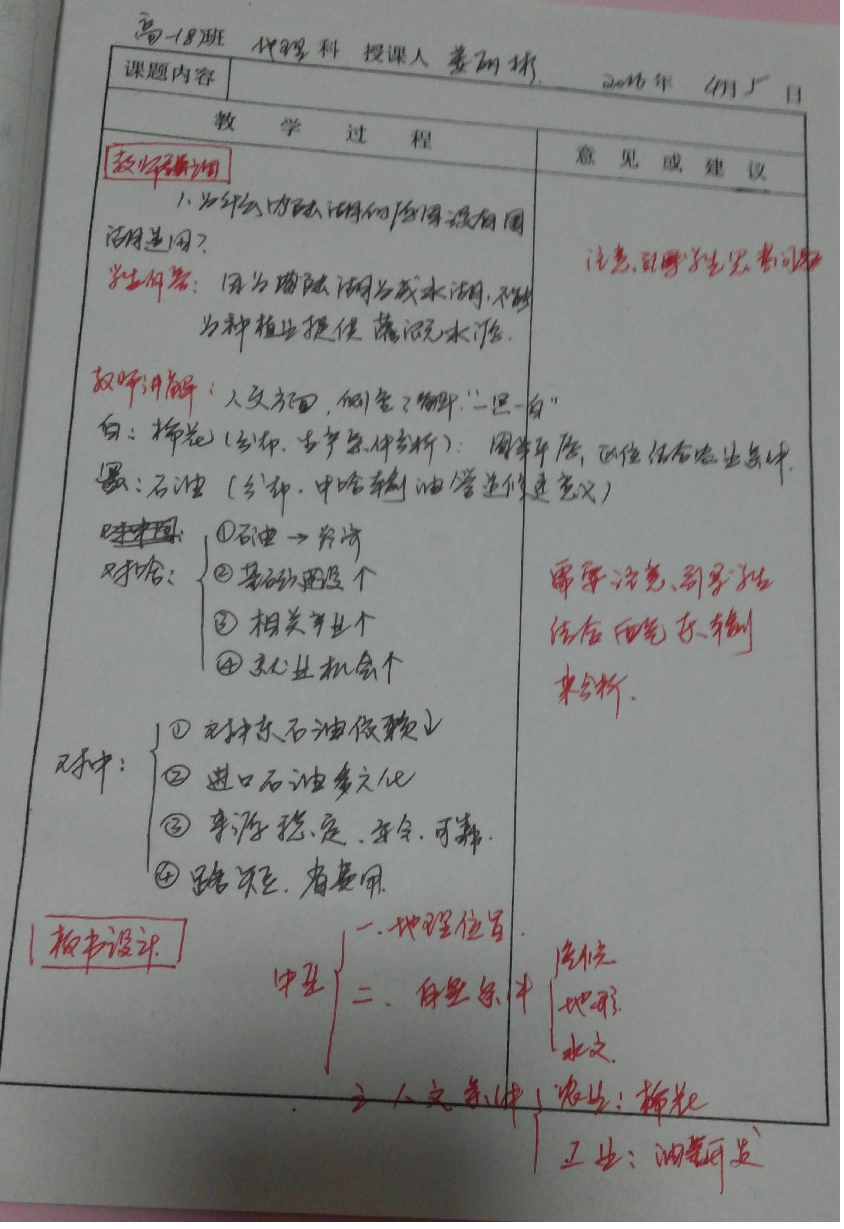 高一18班 地理科 授课人 姜 彬 2016年 4月5日
课题内容
教学过程
意见或建议
教师
1.为什么内陆湖的 没有用
湖 ?
注意引导学生思考问题
学生回答: 因为内陆湖为咸水湖,不能
为种植业提供灌溉水源.
教师讲解: 人文方面,侧重了解"一黑一白"
白: 棉花(分布、生产条件分析): 结合农业条件.
黑:石油(分布、中哈 油管道修建意义)
对中国:
对哈:
①石油→经济
②基础设施建设个
③相关产业个
④就业机会个
需要注意、引导学生
结合西气东输
来分析.
对中:
①对中东石油依赖↓
②进口石油多元化
③来源稳定、安全、可靠.
④路短、省费用.
板书设计
中亚
一.地理位置.
二、自然条件
气候
地形.
水文.
三 人文条件
农业:棉花
工业:油气开发